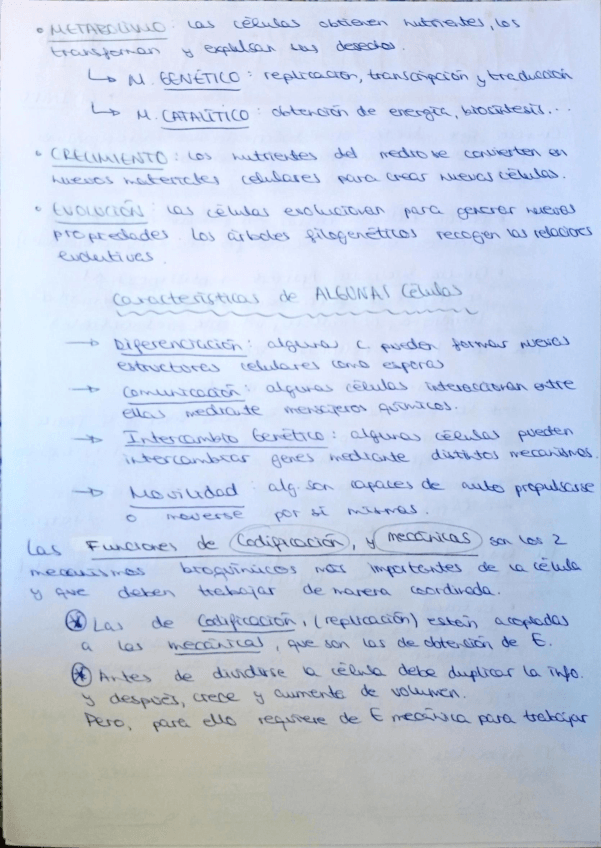 • METABOLISMO: Las células obtienen nutrientes, los
transforman y expulsan sus desechos.
↳ M. GENÉTICO: replicación, transcripción y traducción
↳ M. CATALÍTICO: obtención de energía, biosíntesis...
• CRECIMIENTO: Los nutrientes del medio se convierten en
nuevos materiales celulares para crear nuevas células.
• EVOLUCIÓN: Las células evolucionan para generar nuevas
propiedades. Los árboles filogenéticos recogen las relaciones
evolutivas.
Características de ALGUNAS Células
→ Diferenciación: algunas c pueden formar nuevas
estructuras celulares como esporas
→ Comunicación: algunas células interaccionan entre
ellas mediante mensajeros químicos.
→ Intercambio Genético: algunas células pueden
intercambiar genes mediante distintos mecanismos.
→ Movilidad: alg. son capaces de auto propulsarse
o moverse por sí mismas.
Las Funciones de Codificación, y mecánicas son los 2
mecanismos bioquímicos más importantes de la célula
y que deben trabajar de manera coordinada.
* Las de Codificación, (replicación) están acopladas
a las mecánicas, que son las de obtención de E.
* Antes de dividirse la célula debe duplicar la info.
y después, crece y aumenta de volumen.
Pero, para ello requiere de E mecánica para trabajar